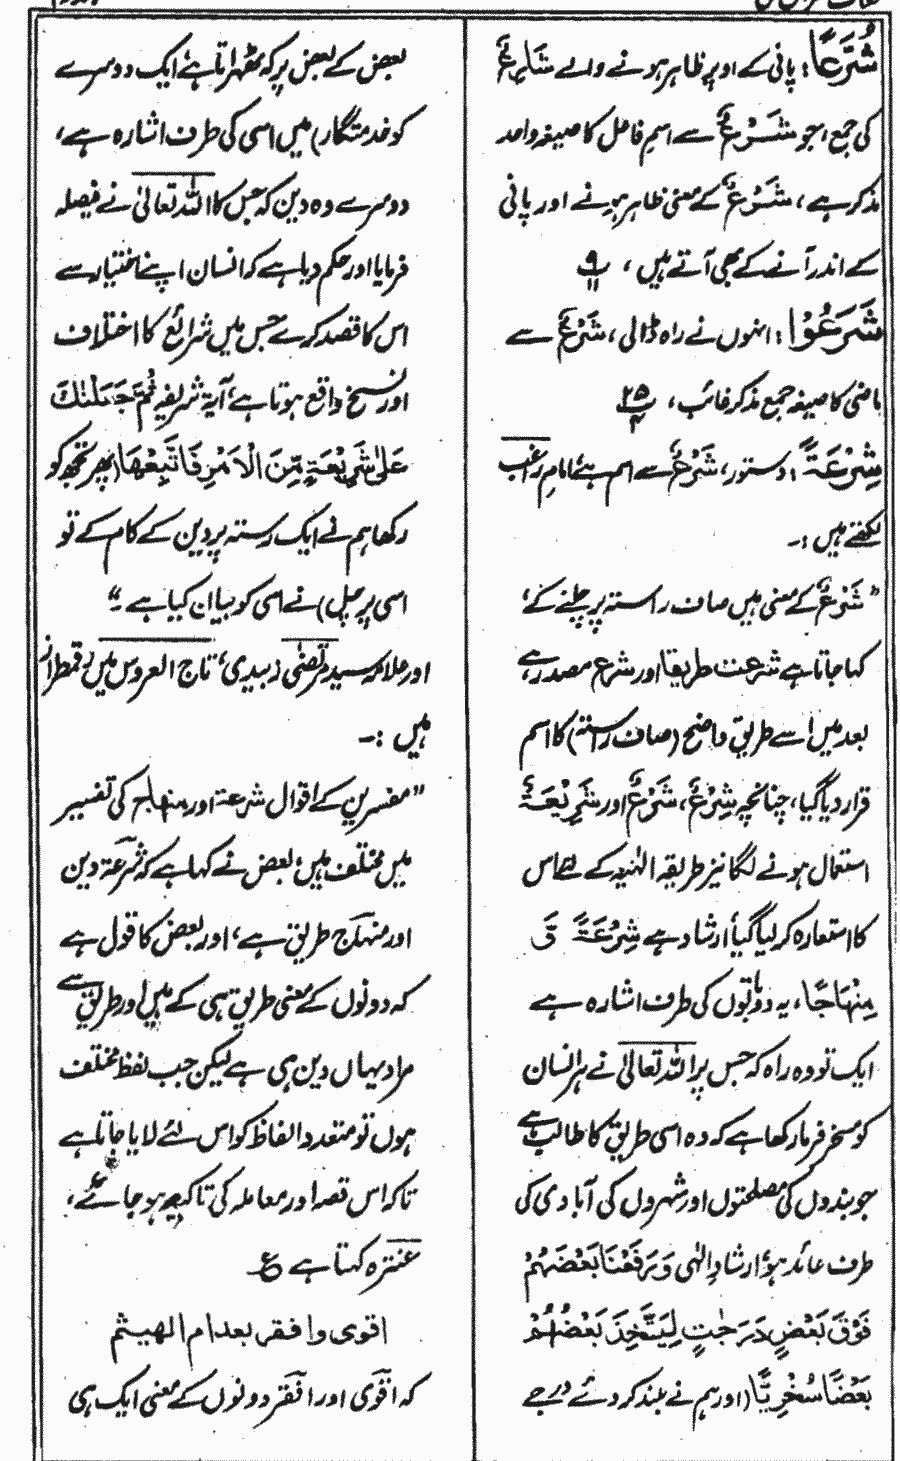 شُرَّعًا: پانی کے اوپر ظاہر ہونے والے شَارِعٌ
کی جمع جو شُرُوْعٌ سے اسم فاعل کا صیغہ واحد
مذکر ہے، شُرُوْعٌ کے معنی ظاہر ہونے اور پانی
کے اندر آنے کے بھی آتے ہیں، ۹/۱۱
شَرَعُوْا: انہوں نے راہ ڈالی، شَرْعٌ سے
ماضی کا صیغہ جمع مذکر غائب، ۲۵/۴
شِرْعَةً: دستور، شَرْعٌ سے اسم ہے، امام راغب
لکھتے ہیں :۔
"شَرْعٌ کے معنی ہیں صاف راستہ پر چلنے کے،
کہا جاتا ہے شرعت طریقا اور شرع مصدر ہے،
بعد میں اسے طریق واضح (صاف راستہ) کا اسم
قرار دیا گیا، چنانچہ شِرْعٌ، شَرْعٌ اور شَرِیْعَةٌ
استعمال ہونے لگا نیز طریقہ الٰہیہ کے لئے اس
کا استعارہ کر لیا گیا، ارشاد ہے شِرْعَةً وَّ
مِنْهَاجًا، یہ دو باتوں کی طرف اشارہ ہے
ایک تو وہ راہ کہ جس پر اللہ تعالیٰ نے ہر انسان
کو مسخر فرما رکھا ہے کہ وہ اسی طریق کا طالب ہے
جو بندوں کی مصلحتوں اور شہروں کی آبادی کی
طرف عائد ہو، ارشادِ الٰہی وَرَفَعْنَا بَعْضَهُمْ
فَوْقَ بَعْضٍ دَرَجٰتٍ لِّيَتَّخِذَ بَعْضُهُمْ
بَعْضًا سُخْرِيًّا (اور ہم نے بلند کر دئے درجے
بعض کے بعض پر کہ ٹھہراتا ہے ایک دوسرے
کو خدمتگار) میں اسی کی طرف اشارہ ہے،
دوسرے وہ دین کہ جس کا اللہ تعالیٰ نے فیصلہ
فرمایا اور حکم دیا ہے کہ انسان اپنے اختیار سے
اس کا قصد کرے جس میں شرائع کا اختلاف
اور نسخ واقع ہوتا ہے، آیۃ شریفہ ثُمَّ جَعَلْنٰكَ
عَلٰى شَرِيْعَةٍ مِّنَ الْاَمْرِ فَاتَّبِعْهَا (پھر تجھ کو
رکھا ہم نے ایک رستہ پر دین کے کام کے تو
اسی پر چل) نے اسی کو بیان کیا ہے۔"
اور علامہ سید مرتضیٰ زبیدی، تاج العروس میں رقمطراز
ہیں :۔
"مفسرین کے اقوال شرعۃ اور منہاج کی تفسیر
میں مختلف ہیں، بعض نے کہا ہے کہ شرعۃ دین
اور منہاج طریق ہے، اور بعض کا قول ہے
کہ دونوں کے معنی طریق ہی کے ہیں اور طریق سے
مراد یہاں دین ہی ہے لیکن جب لفظ مختلف
ہوں تو متعدد الفاظ کو اس لئے لایا جاتا ہے
تاکہ اس قصہ اور معاملہ کی تاکید ہو جائے،
عنترہ کہتا ہے ع
اقوی واقفر بعد ام الھیثم
کہ اقوی اور اقفر دونوں کے معنی ایک ہی